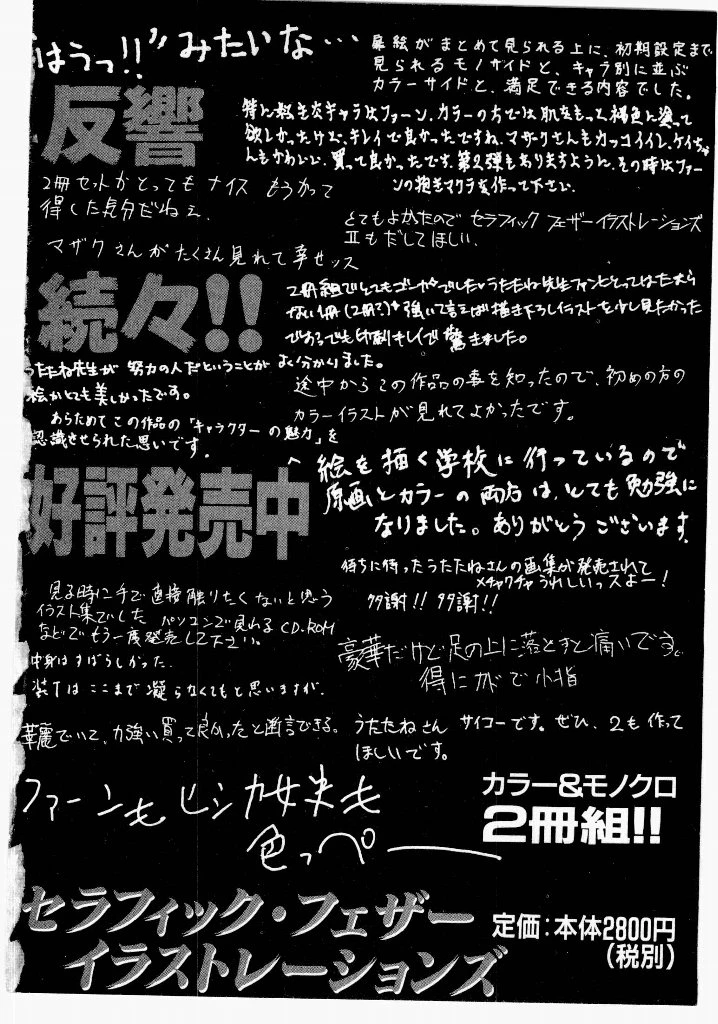 はうっ!!”みたいな…
扉絵がまとめて見られる上に、初期設定まで
見られるモノサイドと、キャラ別に並ぶ
カラーサイドと、満足できる内容でした。
反響
特に好きなキャラはファーン、カラーの方では肌をもっと褐色に塗って
欲しかったけど、キレイで良かったですね。マザクさんもカッコイイし、ケイちゃ
んもかわいいし、買って良かったです。第2弾もありますように、その時はファー
ンの抱きマクラを作って下さい。
2冊セットがとってもナイス もうかって
得した気分だねぇ、
とてもよかたので セラフィック フェザーイラストレーションズ
Ⅱもだしてほしい、
マザクさんがたくさん見れて幸せッス
続々!!
2冊組でとてもゴーヂャでした。うたたね先生ファンにとってはたまら
ない1冊(2冊?)。強いて言えば描き下ろしイラストを少し見たかった
でも印刷キレイで驚きました。
うたたね先生が 努力の人だということがよく分かりました。
絵がとても美しかったです。
途中からこの作品の事を知ったので、初めの方の
カラーイラストが見れてよかったです。
あらためてこの作品の「キャラクターの魅力」を
認識させられた思いです。
好評発売中
絵を描く学校に行っているので
原画とカラーの両方は、とても勉強に
なりました。ありがとうございます。
待ちに待ったうたたねさんの画集が発売されて
メチャクチャうれしいっスよー!
多謝!! 多謝!!
見る時に手で直接触りたくないと思う
イラスト集でした パソコンで見れるCD-ROM
などでもう一度発売して下さい。
中身はすばらしかった。
装丁はここまで凝らなくてもと思いますが、
豪華だけど足の上に落とすと痛いです。
得にカドで小指
華麗でいて、力強い買って良かったと断言できる。
うたたねさん サイコーです。ぜひ、2も作って
ほしいです。
ファーンも ヒシカ女史も
色っぺ――
カラー&モノクロ
2冊組!!
セラフィック・フェザー
イラストレーションズ
定価:本体2800円
(税別)